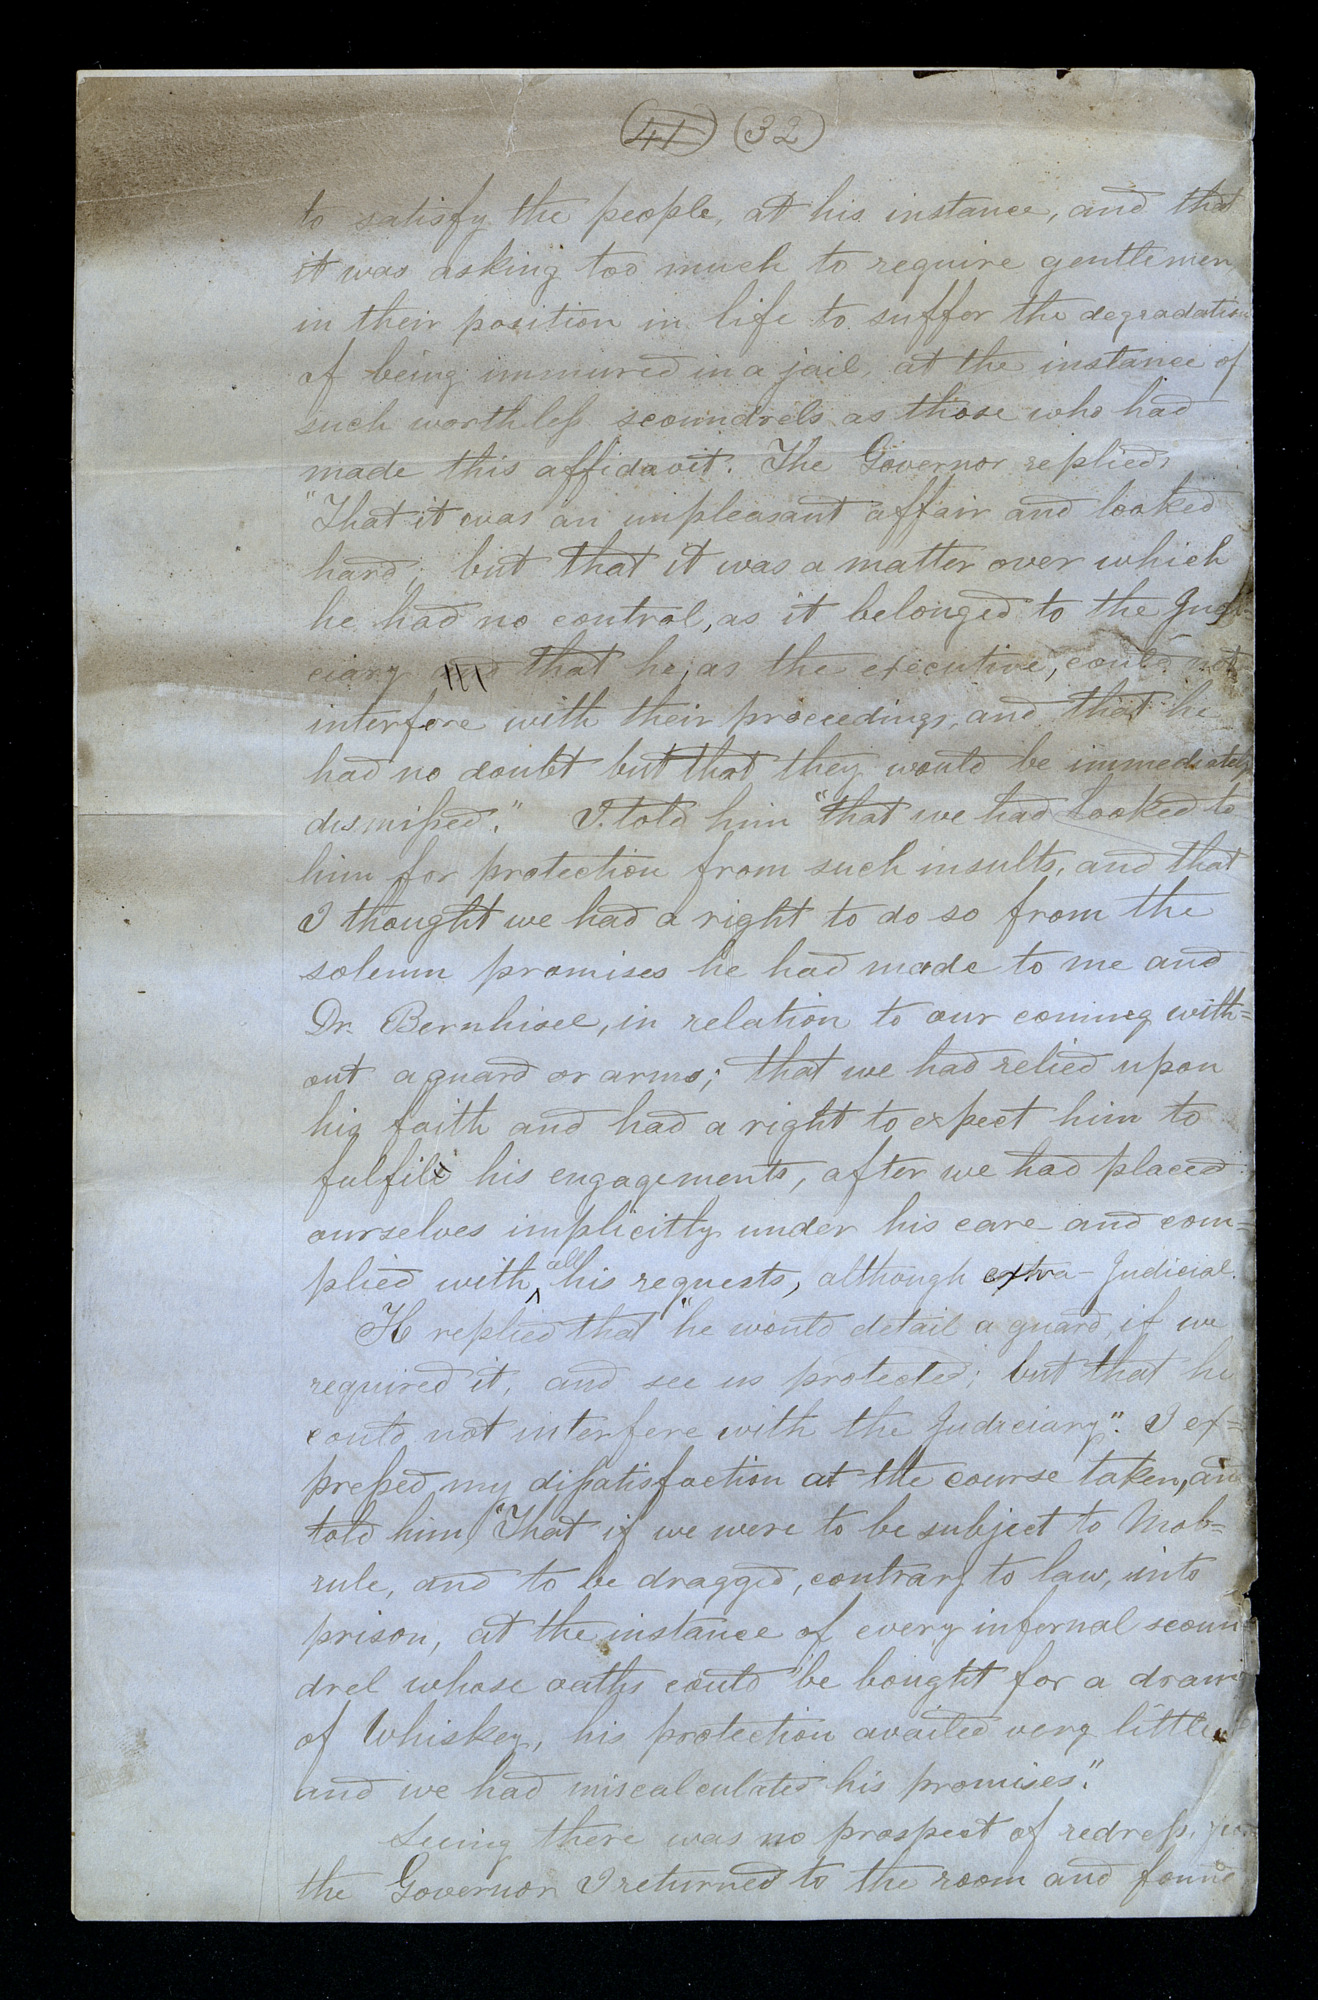 41 32
to satisfy the people, at his instance, and that
it was asking too much to require gentlemen
in their position in life to suffer the degradation
of being immured in a jail, at the instance of
such worthless scoundrels as those who had
made this affidavit. The Governor replied,
"That it was an unpleasant affair and looked
hard; but that it was a matter over which
he had no control, as it belonged to the Judi-
ciary and that he, as the executive, could not
interfere with their proceedings, and that he
had no doubt but that they would be immediately
dismissed." I told him "that we had looked to
him for protection from such insults, and that
I thought we had a right to do so from the
solemn promises he had made to me and
Dr. Bernhisel, in relation to our coming with=
out a guard or arms; that we had relied upon
his faith and had a right to expect him to
fulfil his engagements, after we had placed
ourselves implicitly under his care and com=
plied with all his requests, although extra-Judicial.
He replied that "he would detail a guard, if we
required it, and see us protected; but that he
could not interfere with the Judiciary". I ex=
pressed my dissatisfaction at the course taken, and
told him, "That if we were to be subject to Mob=
rule, and to be dragged, contrary to law, into
prison, at the instance of every infernal scoun
drel whose oaths could be bought for a dram
of Whiskey, his protection availed very little
and we had miscalculated his promises".
Seeing there was no prospect of redress
the Governor I returned to the room and found